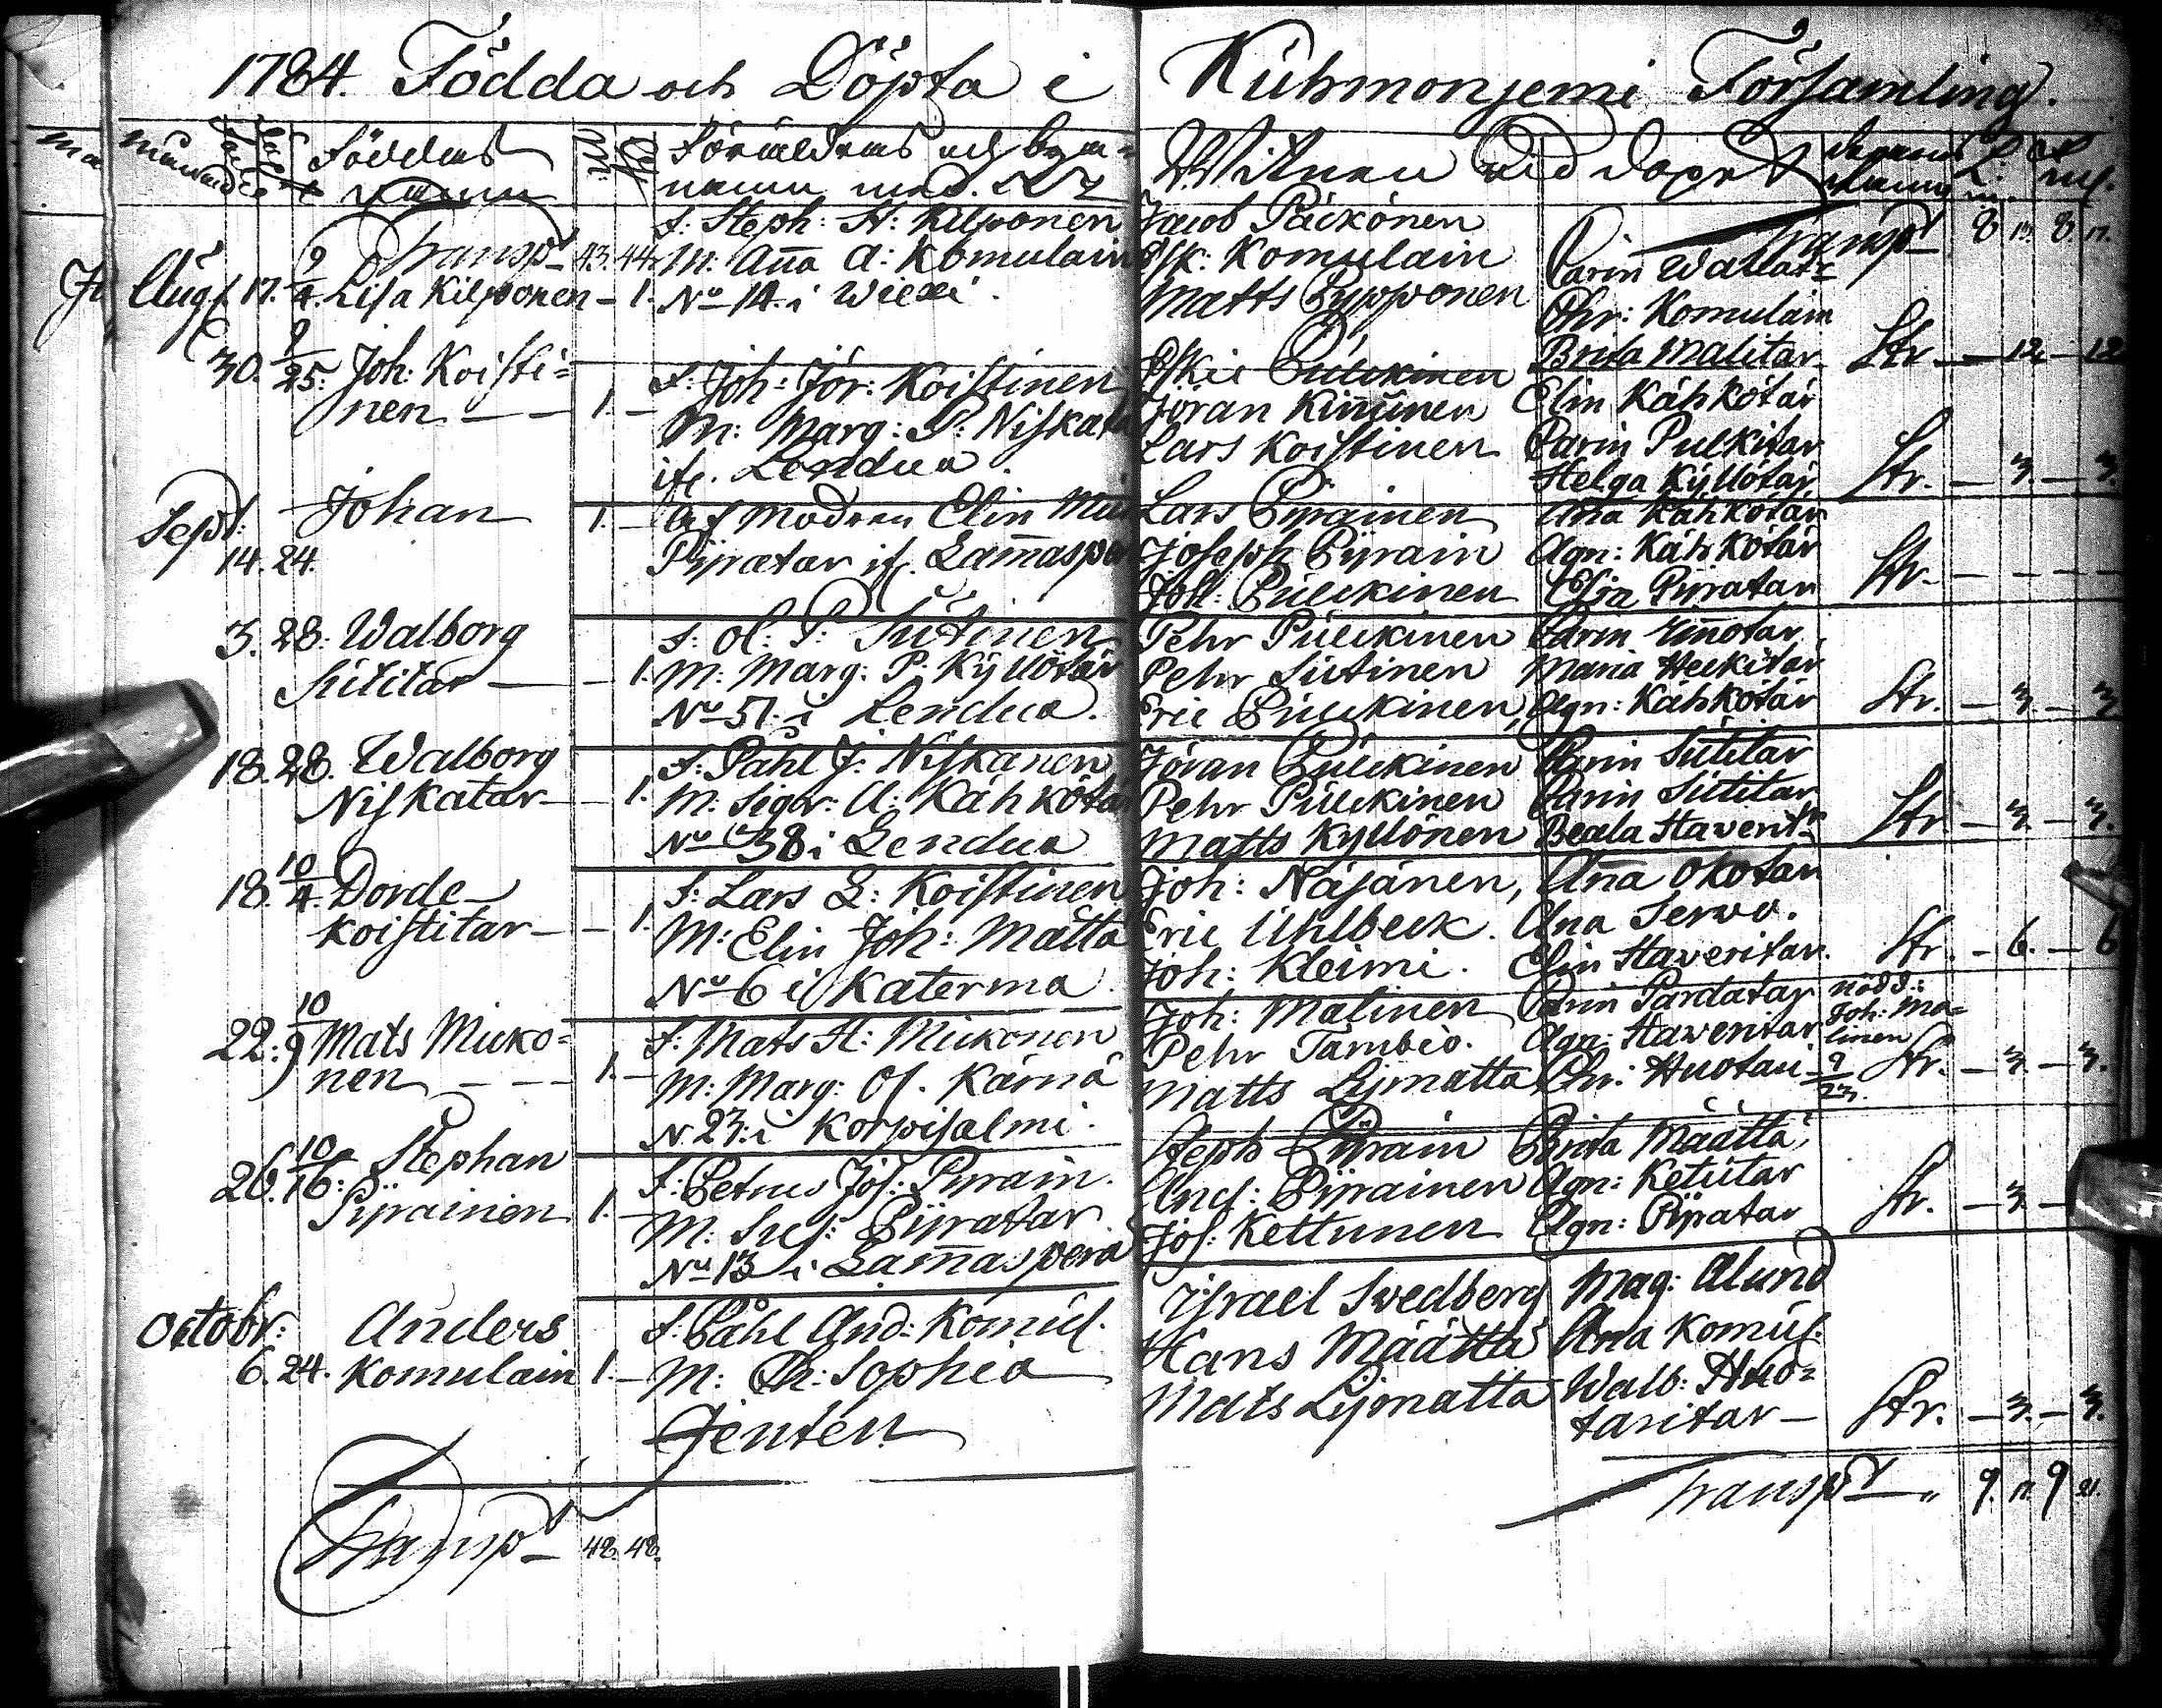 1784. Födda och Döpta i Kuhmonjemi Församling.
Föddas namn
Föräldrars och byanamn
Witnen vid dopet
Transp 43. 44.
Transp 8 13. 8. 17.
Aug 17. 9/4. Lisa Kilponen — 1.
F: Steph: H: Kilponen
M: Aña A: Komulain
No 14. i Wiexi.
Jacob Päckönen
Esk: Komulain
Matts Pypponen
Carin Wattat
Chr: Komulain
Brita Malitar
Str — 12 — 12
30. 9/25. Joh: Koisti=
nen — — 1. —
F: Joh: Jör: Koistinen
M: Marg: P: Niskata
ifr. Lendua.
Eskil Pulckinen
Jöran Kiñunen
Lars Koistinen
Elin Kähkötär
Carin Pulkitar
Helga Kyllötär
Str. — 3. — 3.
Sept:
14. 24. Johan 1. —
Af Modren Elin
Pijratar if. Lam̃asper
Lars Pijrainen
Joseph Pijrain
Joh: Pulckinen
Aña Kähkötär
Agn: Kähkötär
Elia Pijratar
Str. — — — —
3. 28. Walborg
Sutitar — — 1.
F: Ol: P: Sutinen
M: Marg: P: Kyllötär
No 51. i Lendua.
Pehr Pulckinen
Pehr Sutinen
Eric Pulckinen,
Carin
Maria Heckitar
Agn: Kähkötär
Str. — 3. — 3
18. 28. Walborg
Niskatar — — 1.
F: Påhl J: Niskanen
M: Sigr: A: Kähkötär
No 38 i Lendua
Jöran Pulckinen
Pehr Pulckinen
Matts Kyllönen
Carin Sutitar
Carin Sutitar
Beata Haverit
Str — 3. — 3.
18. 10/4. Dorde
Koistitar — — 1.
F: Lars L: Koistinen
M: Elin Joh: Mättä
No 6 i Katerma
Joh: Näjänen,
Eric Uhlbeck.
Joh: Kleimi.
Aña Okotar
Ana Serwo.
Elin Haveritar.
Str. — 6. — 6
22. 10/9 Mats Micko=
nen — — 1. —
F: Mats H: Mickonen
M: Marg: Of. Kärnä
N. 23. i Korpisalmi.
Joh: Malinen
Pehr Tämbio.
Matts Lijmatta
Carin Pardatar
Agn: Haveritar
Chr: Huotau
nödd:
Joh: Ma=
linen
9/23.
Str. — 3. — 3.
26. 10/16. Stephan
Pijrainen 1. —
F: Petrus Jos: Pyrain.
M: Sus: Pijratar.
No 13 i Lam̃asperä
Steph Pijrain
And: Pijrainen
Jos: Kettunen
Brita Määttä
Agn: Ketutar
Agn: Pijratar
Str. — 3. —
Octobr:
6. 24. Anders
Komulain 1. —
F: Påhl And: Komul.
M: Ch: Sophia
Jenten
Israel Svedberg
Hans Määttä
Mats Lijmatta
Mag: Alund
Ana Komul:
Walb: Huo=
taritar —
Str. — 3. — 3.
Transp 48. 48.
Transp " 9. 11. 9 21.